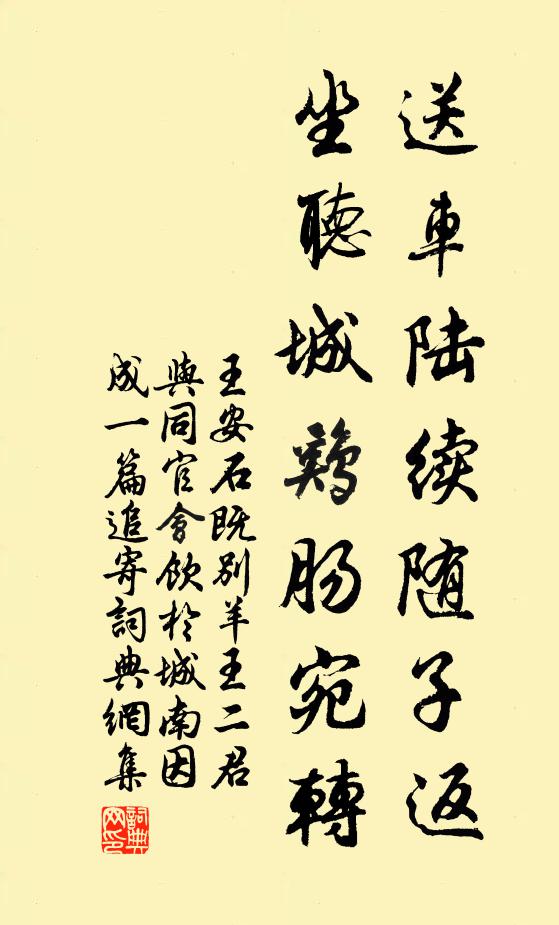 送車陆续随子返
坐聽城鷄肠宛轉
王安石既别羊王二君
與同官會飲於城南因
成一篇追寄詞典網集
詞典
网印